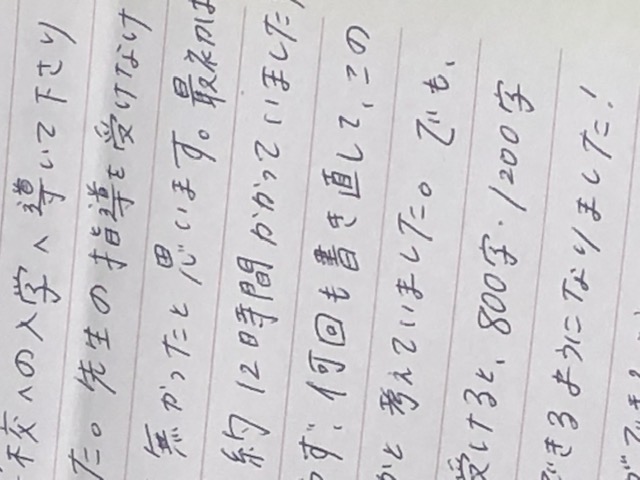 校への入学へ導いて下さり
た。先生の指導を受けなけ
無かったと思います。最初は
約12時間かかっていました
らず、何回も書き直して、この
かと考えていました。でも、
受けると、800字・1200字
できるようになりました!
ができ